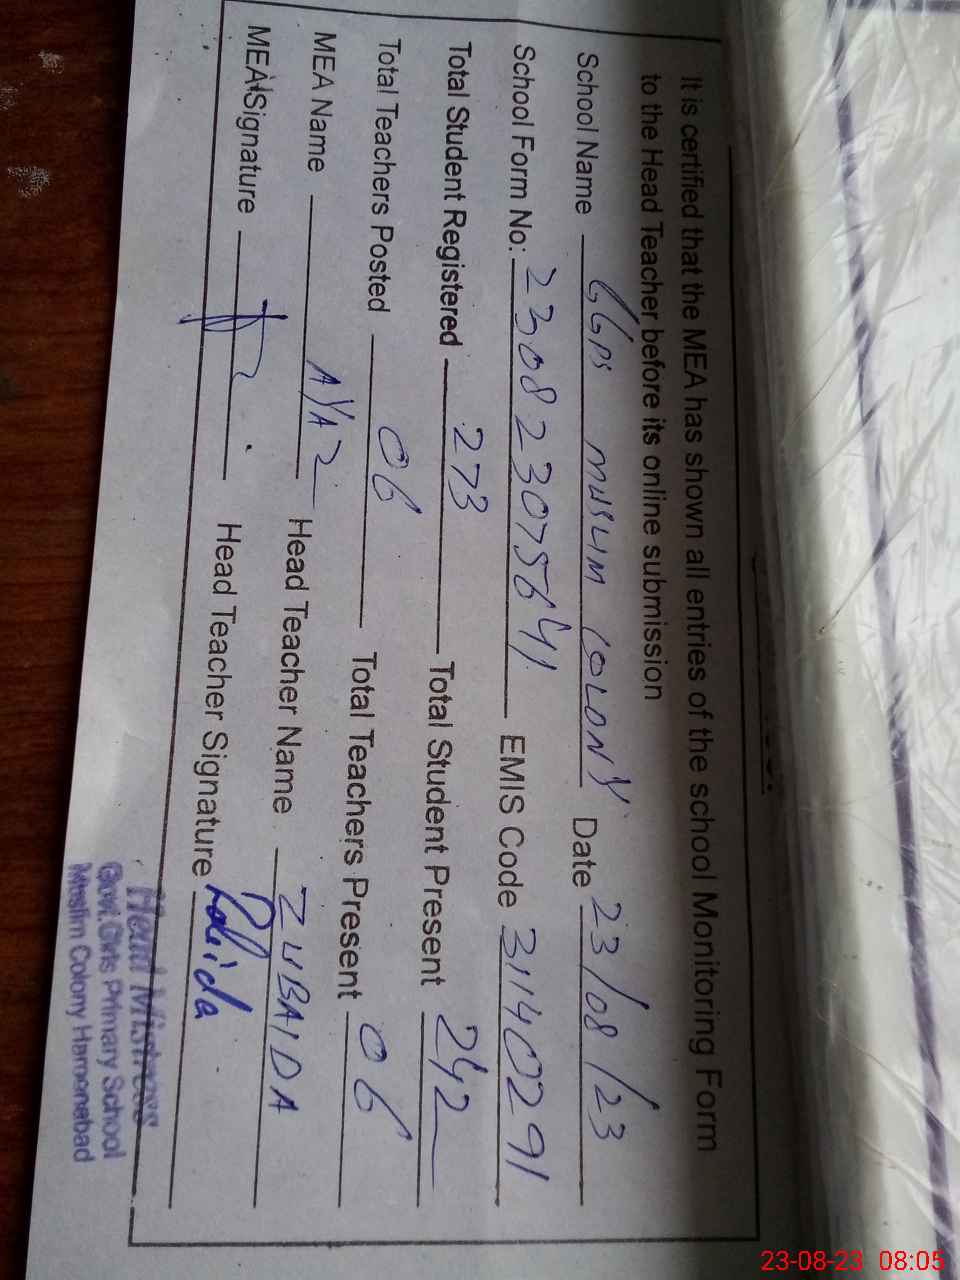 It is certified that the MEA has shown all entries of the school Monitoring Form
to the Head Teacher before its online submission
School Name GGPS MUSLIM COLONY Date 23/08/23
School Form No: 230823075641 EMIS Code 31140291
Total Student Registered 273 Total Student Present 242
Total Teachers Posted 06 Total Teachers Present 06
MEA Name AYAZ Head Teacher Name ZUBAIDA
MEA Signature Head Teacher Signature
Head Mistress
Govt. Girls Primary School
Muslim Colony
23-08-23 08:05